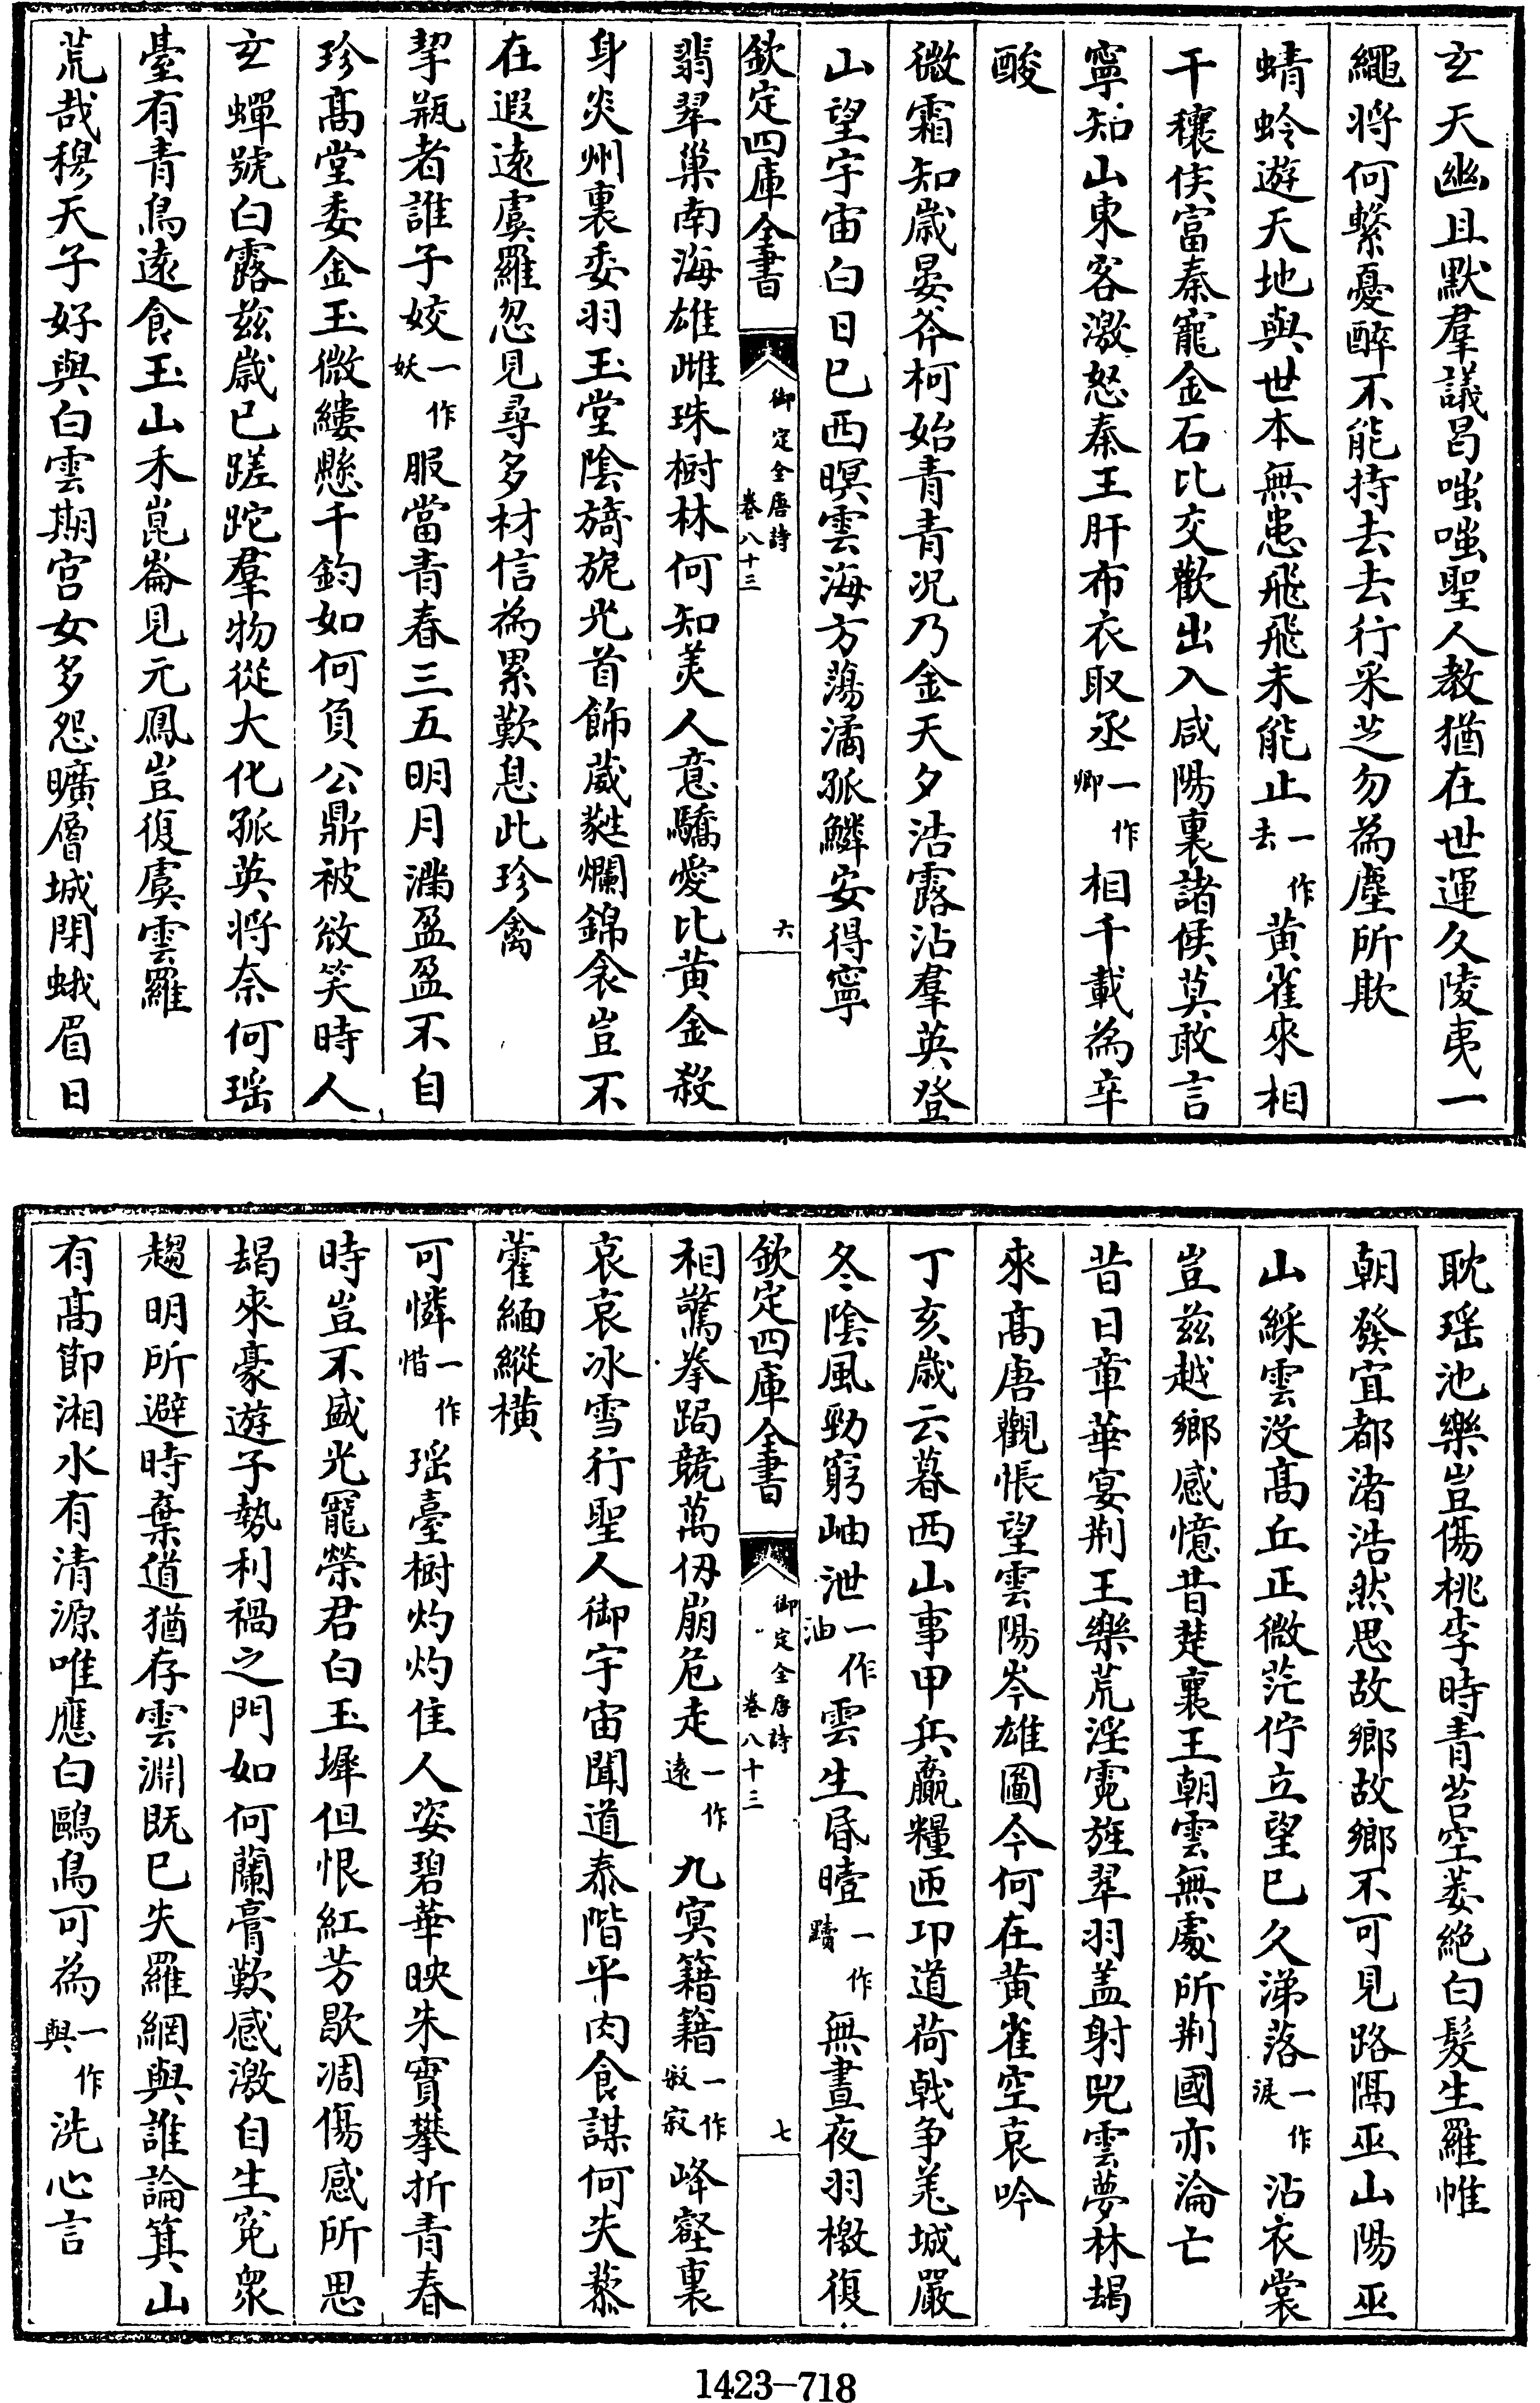 玄天幽且默羣議曷嗤嗤聖人教猶在世運久陵夷一
繩將何繫憂醉不能持去去行采芝勿為塵所欺
蜻蛉遊天地與世本無患飛飛未能止一作去黃雀來相
干穰侯富秦寵金石比交歡出入咸陽裏諸侯莫敢言
寧知山東客激怒秦王肝布衣取丞一作卿相千載為辛
酸
微霜知歲晏斧柯始青青况乃金天夕浩露沾羣英登
山望宇宙白日已西暝雲海方蕩潏孤鱗安得寧
欽定四庫全書
御定全唐詩
卷八十三
六
翡翠巢南海雄雌珠樹林何知美人意驕愛比黃金殺
身炎州裏委羽玉堂陰旖旎光首飾葳蕤爛錦衾豈不
在遐遠虞羅忽見尋多材信為累歎息此珍禽
挈瓶者誰子姣一作妖服當青春三五明月滿盈盈不自
珍高堂委金玉微縷懸千鈞如何負公鼎被敓笑時人
玄蟬號白露兹歲已蹉跎羣物從大化孤英將奈何瑶
臺有青鳥遠食玉山禾崑崙見元鳳豈復虞雲羅
荒哉穆天子好與白雲期宫女多怨曠層城閉蛾眉日
耽瑶池樂豈傷桃李時青苔空萎絶白髮生羅帷
朝發宜都渚浩然思故鄉故鄉不可見路隔巫山陽巫
山綵雲没高丘正微茫佇立望已久涕落一作淚沾衣裳
豈兹越鄉感憶昔楚襄王朝雲無處所荆國亦淪亡
昔日章華宴荆王樂荒淫霓旌翠羽盖射兕雲夢林朅
來高唐觀悵望雲陽岑雄圖今何在黃雀空哀吟
丁亥歲云暮西山事甲兵贏糧匝邛道荷戟争羌城嚴
冬陰風勁窮岫泄一作油雲生昏曀一作黷無晝夜羽檄復
欽定四庫全書
御定全唐詩
卷八十三
七
相驚拳跼競萬仞崩危走一作遠九冥籍籍一作寂寂峰壑裏
哀哀冰雪行聖人御宇宙聞道泰階平肉食謀何失藜
藿緬縱横
可憐一作惜瑶臺樹灼灼佳人姿碧華映朱實攀折青春
時豈不盛光寵榮君白玉墀但恨紅芳歇凋傷感所思
朅來豪遊子勢利禍之門如何蘭膏歎感激自生寃衆
趨明所避時棄道猶存雲淵既已失羅網與誰論箕山
有高節湘水有清源唯應白鷗鳥可為一作與洗心言
1423-718